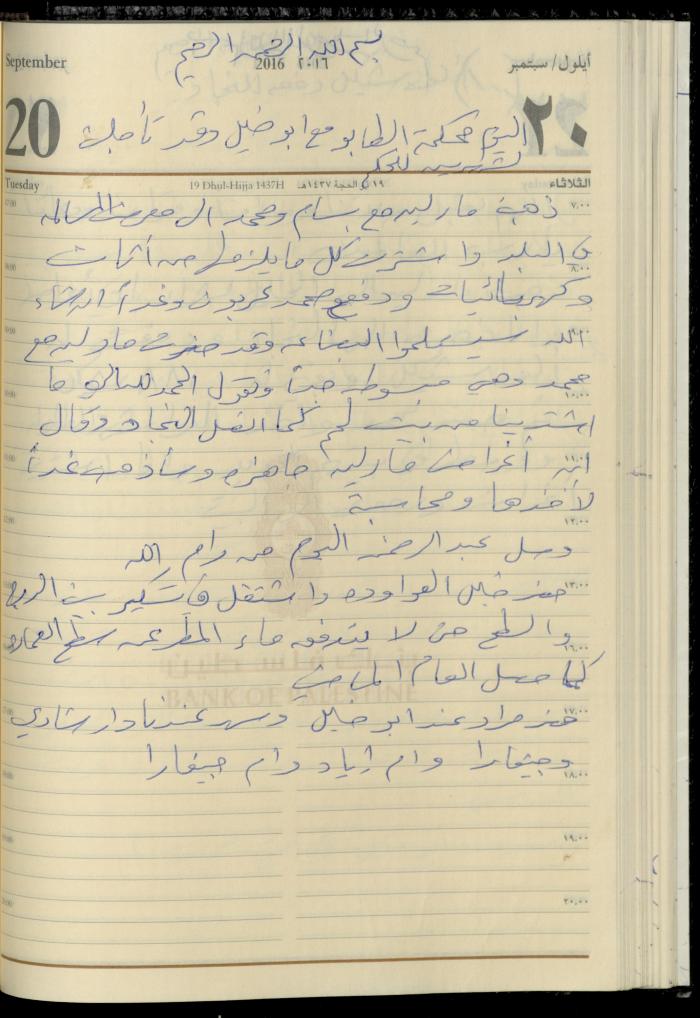 بسم الله الرحمن الرحيم
September
2016 ٢٠١٦
أيلول/ سبتمبر
20
٢٠
اليوم محكمة الطابو مع ابو خليل وقد تأجلت
لشهرين للحكم
Tuesday
19 Dhul-Hijja 1437H
١٩ ذي الحجة ١٤٣٧هـ
الثلاثاء
٧:٠٠
ذهبة مارليه مع بسام ومحمد الى معرض
٨:٠٠
في البلد واشترت كل ما يلزمها من أثاث
وكهربائيات ودفع محمد عربون وغداً انشاء
الله سيستلموا البضاعه وقد حضرت مارليه مع
محمد وهي مبسوطه جداً وتقول الحمد لله الي ما
١٠:٠٠
اشترينا من بيت لحم كما اتصل النجار وقال
١١:٠٠
انه أغراض مارليه جاهزه وسأذهب غداً
لأخذها ومحاسبة
١٢:٠٠
وصل عبد الرحمن اليوم من رام الله
١٣:٠٠
حضر خليل العواوده واشتغل في تسكير بيت الدرج
والسطح حتى لا يتدفق ماء المطر عن سطح العماره
١٦:٠٠
كما حصل العام الماضي
BANK OF PALESTINE
١٧:٠٠
حضر مراد عند ابو خليل وسهر عندنا دار شادي
وجيفارا وام اياد وام جيفارا
١٨:٠٠
١٩:٠٠
٢٠:٠٠